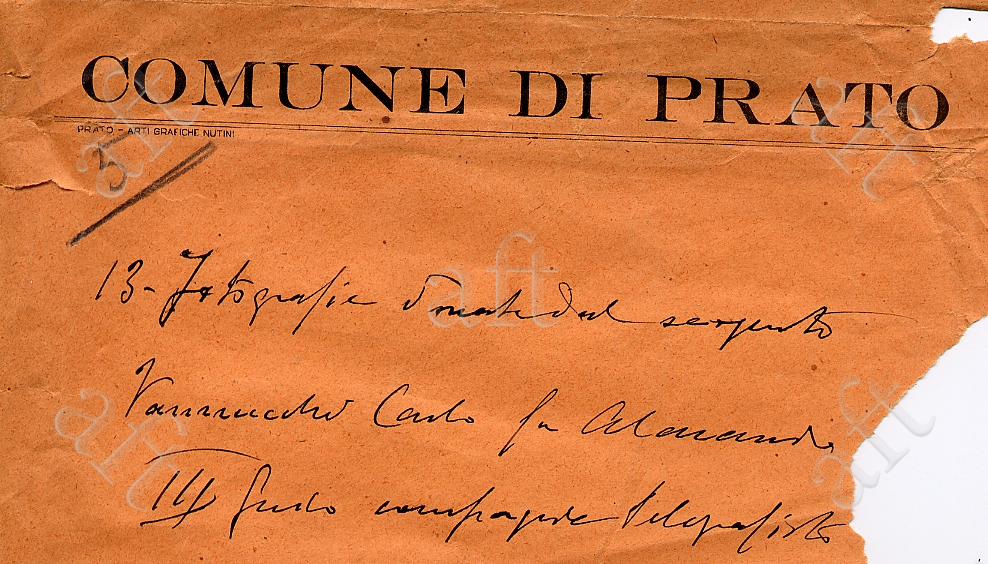 COMUNE DI PRATO
PRATO - ARTI GRAFICHE NUTINI
5
13 - Fotografie donate dal sergente
Vannucchi Carlo fu Alessandro
III compagnia telegrafisti
aft
aft
aft
aft
aft